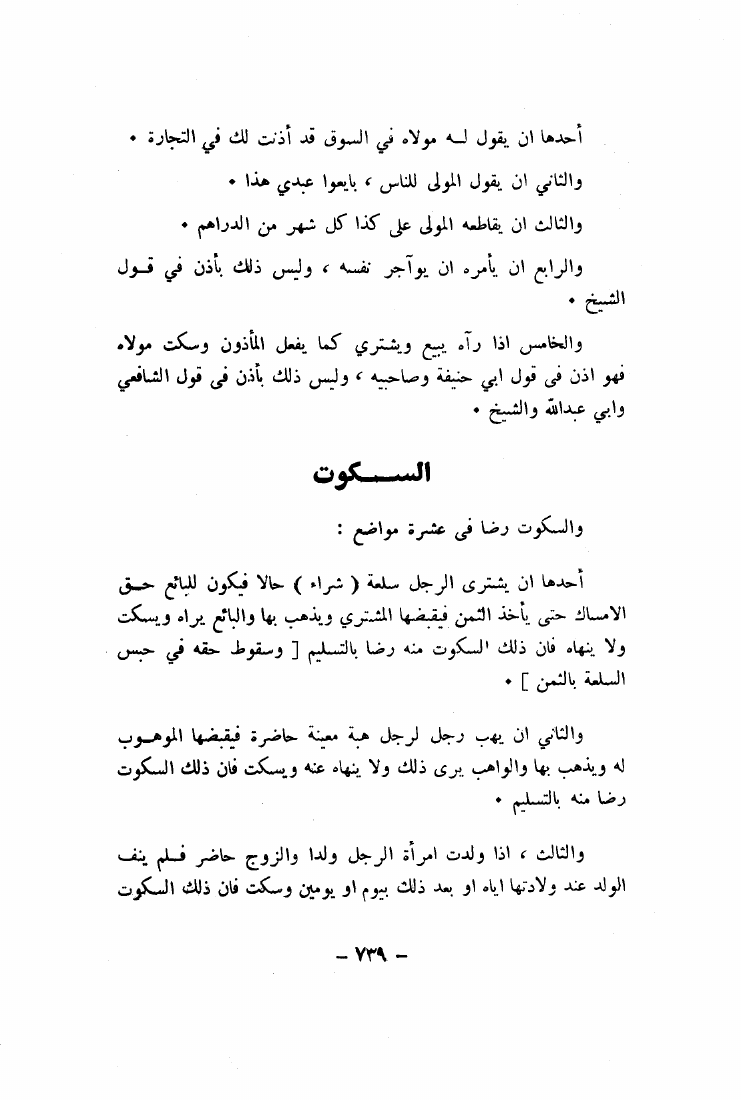 أحدها ان يقول لــه مولاه في السوق قد أذنت لك في التجارة .
والثاني ان يقول المولى للناس ، بايعوا عبدي هذا .
والثالث ان يقاطعه المولى على كذا كل شهر من الدراهم .
والرابع ان يأمره ان يوآجر نفسه ، وليس ذلك بأذن في قــول
الشيخ .
والخامس اذا رآه يبيع ويشتري كما يفعل المأذون وسكت مولاه
فهو اذن فى قول ابي حنيفة وصاحبيه ، وليس ذلك بأذن فى قول الشافعي
وابي عبدالله والشيخ .
الســـكوت
والسكوت رضا فى عشرة مواضع :
أحدها ان يشترى الرجل سلعة ( شراء ) حالا فيكون للبائع حــق
الامساك حتى يأخذ الثمن فيقبضها المشتري ويذهب بها والبائع يراه ويسكت
ولا ينهاه فان ذلك السكوت منه رضا بالتسليم [ وسقوط حقه في حبس
السلعة بالثمن ] .
والثاني ان يهب رجل لرجل هبة معينة حاضرة فيقبضها الموهــوب
له ويذهب بها والواهب يرى ذلك ولا ينهاه عنه ويسكت فان ذلك السكوت
رضا منه بالتسليم .
والثالث ، اذا ولدت امرأة الرجل ولدا والزوج حاضر فــلم ينف
الولد عند ولادتها اياه او بعد ذلك بيوم او يومين وسكت فان ذلك السكوت
– ٧٣٩ –